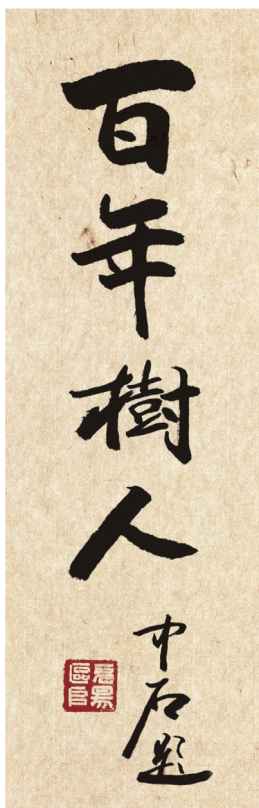 百年樹人
中石題